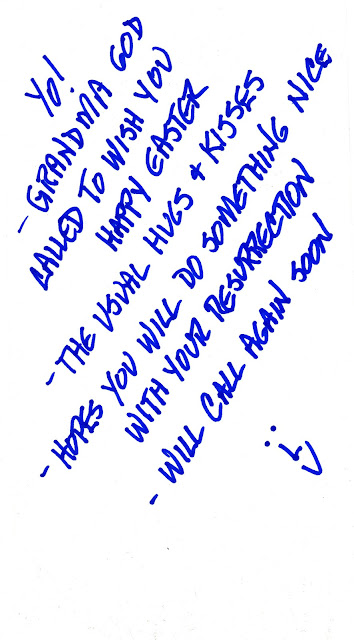 YO!
- GRANDMA GOD
CALLED TO WISH YOU
HAPPY EASTER
- THE USUAL HUGS & KISSES
- HOPES YOU WILL DO SOMETHING NICE
WITH YOUR RESURRECTION
- WILL CALL AGAIN SOON